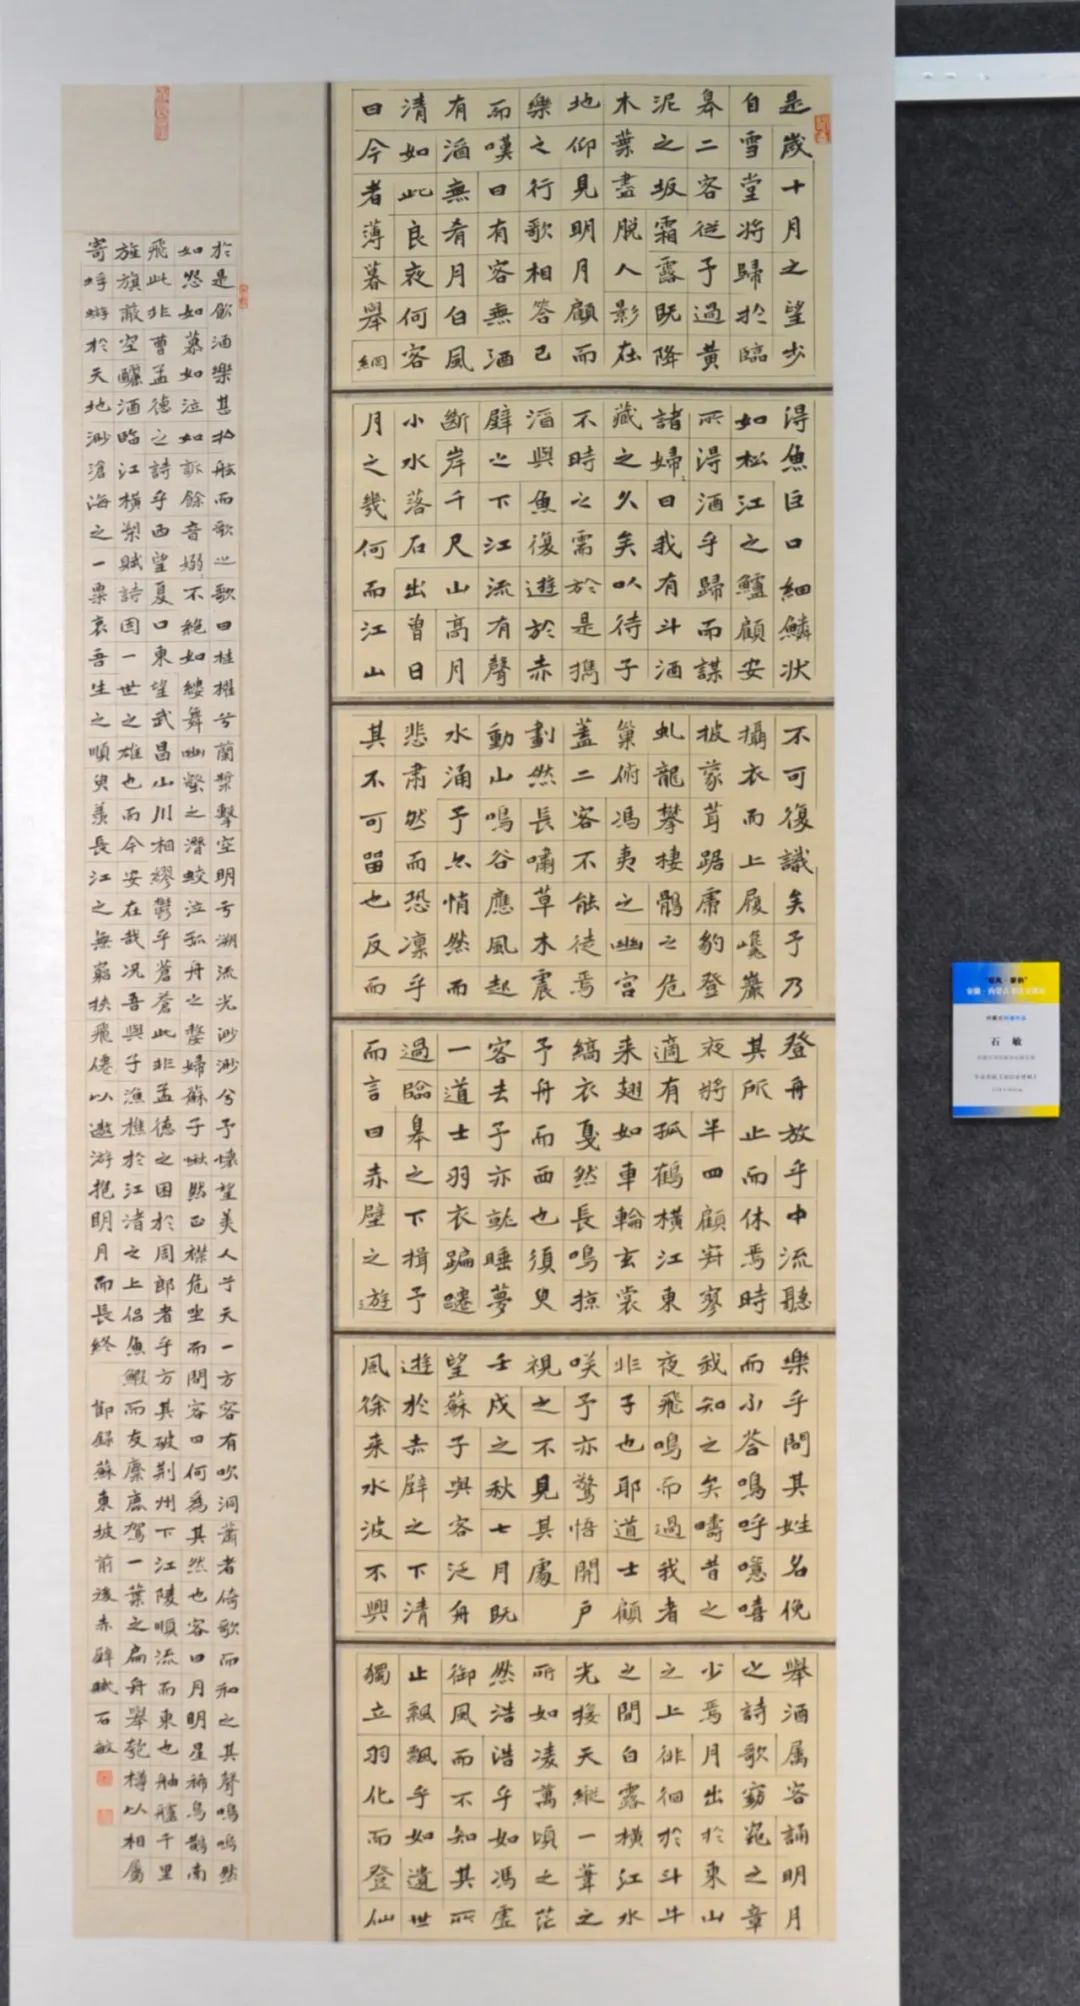 是歲十月之望步
自雪堂將歸於臨
皋二客從予過黃
泥之坂霜露既降
木葉盡脫人影在
地仰見明月顧而
樂之行歌相答已
而嘆曰有客無酒
有酒無肴月白風
清如此良夜何客
曰今者薄暮舉網
得魚巨口細鱗狀
如松江之鱸顧安
所得酒乎歸而謀
諸婦〻曰我有斗酒
藏之久矣以待子
不時之需於是攜
酒與魚復遊於赤
壁之下江流有聲
斷岸千尺山高月
小水落石出曾日
月之幾何而江山
不可復識矣予乃
攝衣而上履巉巖
披蒙茸踞虎豹登
虬龍攀棲鶻之危
巢俯馮夷之幽宮
蓋二客不能徒焉
劃然長嘯草木震
動山鳴谷應風起
水涌予亦悄然而
悲肅然而恐凜乎
其不可留也反而
登舟放乎中流聽
其所止而休焉時
夜將半四顧寂寥
適有孤鶴橫江東
来翅如車輪玄裳
縞衣戛然長鳴掠
予舟而西也須臾
客去予亦就睡夢
一道士羽衣蹁躚
過臨皋之下揖予
而言曰赤壁之遊
樂乎問其姓名俛
而不答嗚呼噫嘻
我知之矣疇昔之
夜飛鳴而過我者
非子也耶道士顧
笑予亦驚悟開戶
視之不見其處
壬戌之秋七月既
望蘇子與客泛舟
遊於赤壁之下清
風徐来水波不興
舉酒属客誦明月
之詩歌窈窕之章
少焉月出於東山
之上徘徊於斗牛
之間白露橫江水
光接天縱一葦之
所如凌萬頃之茫
然浩浩乎如馮虛
御風而不知其所
止飄飄乎如遺世
獨立羽化而登仙
於是飲酒樂甚扣舷而歌之歌曰桂櫂兮蘭槳擊空明兮溯流光渺渺兮予懷望美人兮天一方客有吹洞蕭者倚歌而和之其聲嗚嗚然
如怨如慕如泣如訴餘音嫋〻不絕如縷舞幽壑之潛蛟泣孤舟之嫠婦蘇子愀然正襟危坐而問客曰何為其然也客曰月明星稀烏鵲南
飛此非曹孟德之詩乎西望夏口東望武昌山川相繆鬱乎蒼蒼此非孟德之困於周郎者乎方其破荊州下江陵順流而東也舳艫千里
旌旗蔽空釃酒臨江橫槊賦詩固一世之雄也而今安在哉況吾與子漁樵於江渚之上侶魚鰕而友麋鹿駕一葉之扁舟舉匏樽以相屬
寄蜉蝣於天地渺滄海之一粟哀吾生之須臾羨長江之無窮挾飛僊以遨游抱明月而長終 節錄蘇東坡前後赤壁賦石敏
石 敏